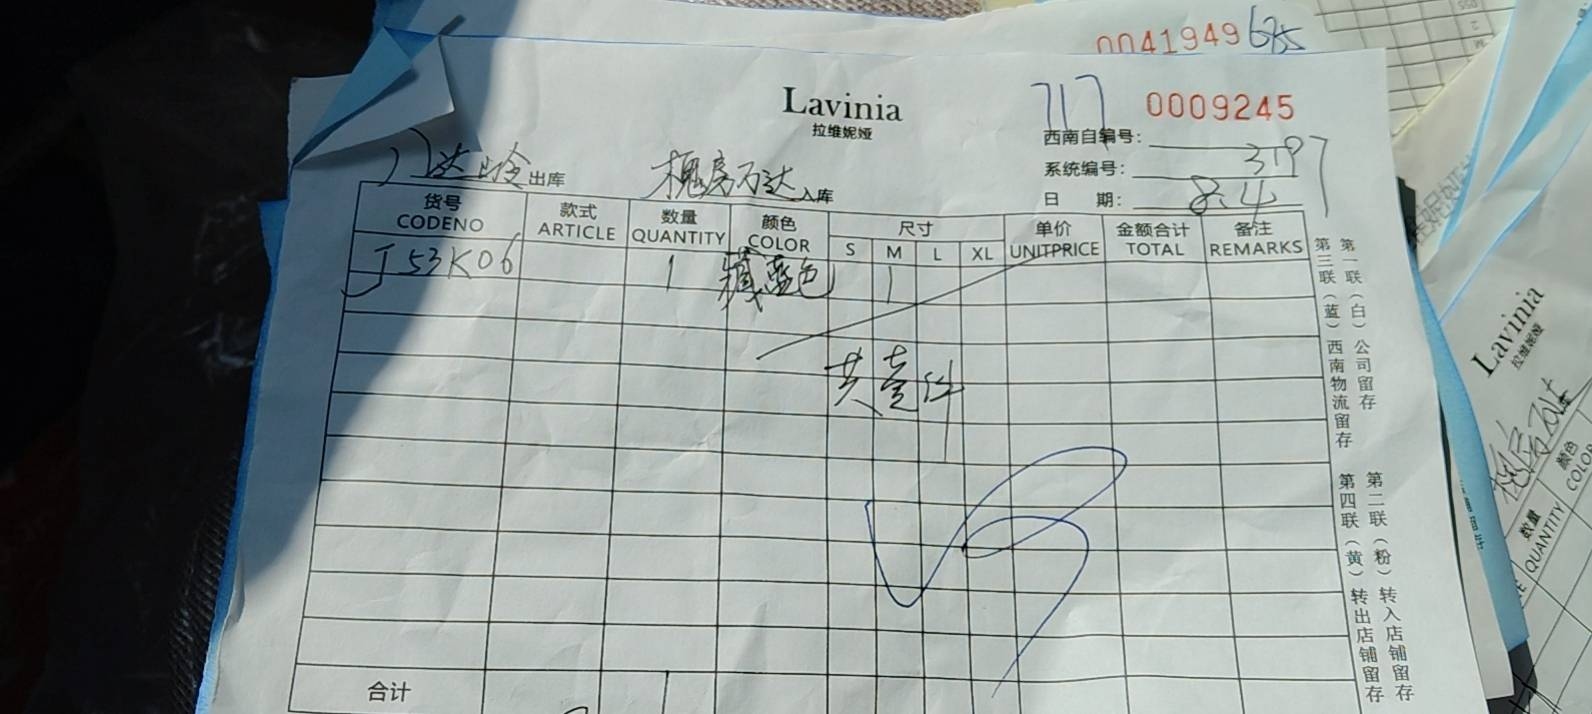 0041949
Lavinia
拉维妮娅
717
0009245
西南自编号：
系统编号： 3197
日 期： 8.4
出库
万达 入库
货号 款式 数量 颜色 尺寸 单价 金额合计 备注
CODENO ARTICLE QUANTITY COLOR S M L XL UNITPRICE TOTAL REMARKS
J53K06 1 藏蓝色 1
共壹件
合计
第一联（白）公司留存
第三联（蓝）西南物流留存
第二联（粉）转入店铺留存
第四联（黄）转出店铺留存
Lavinia
拉维妮娅
数量
QUANTITY
颜色
COLOR